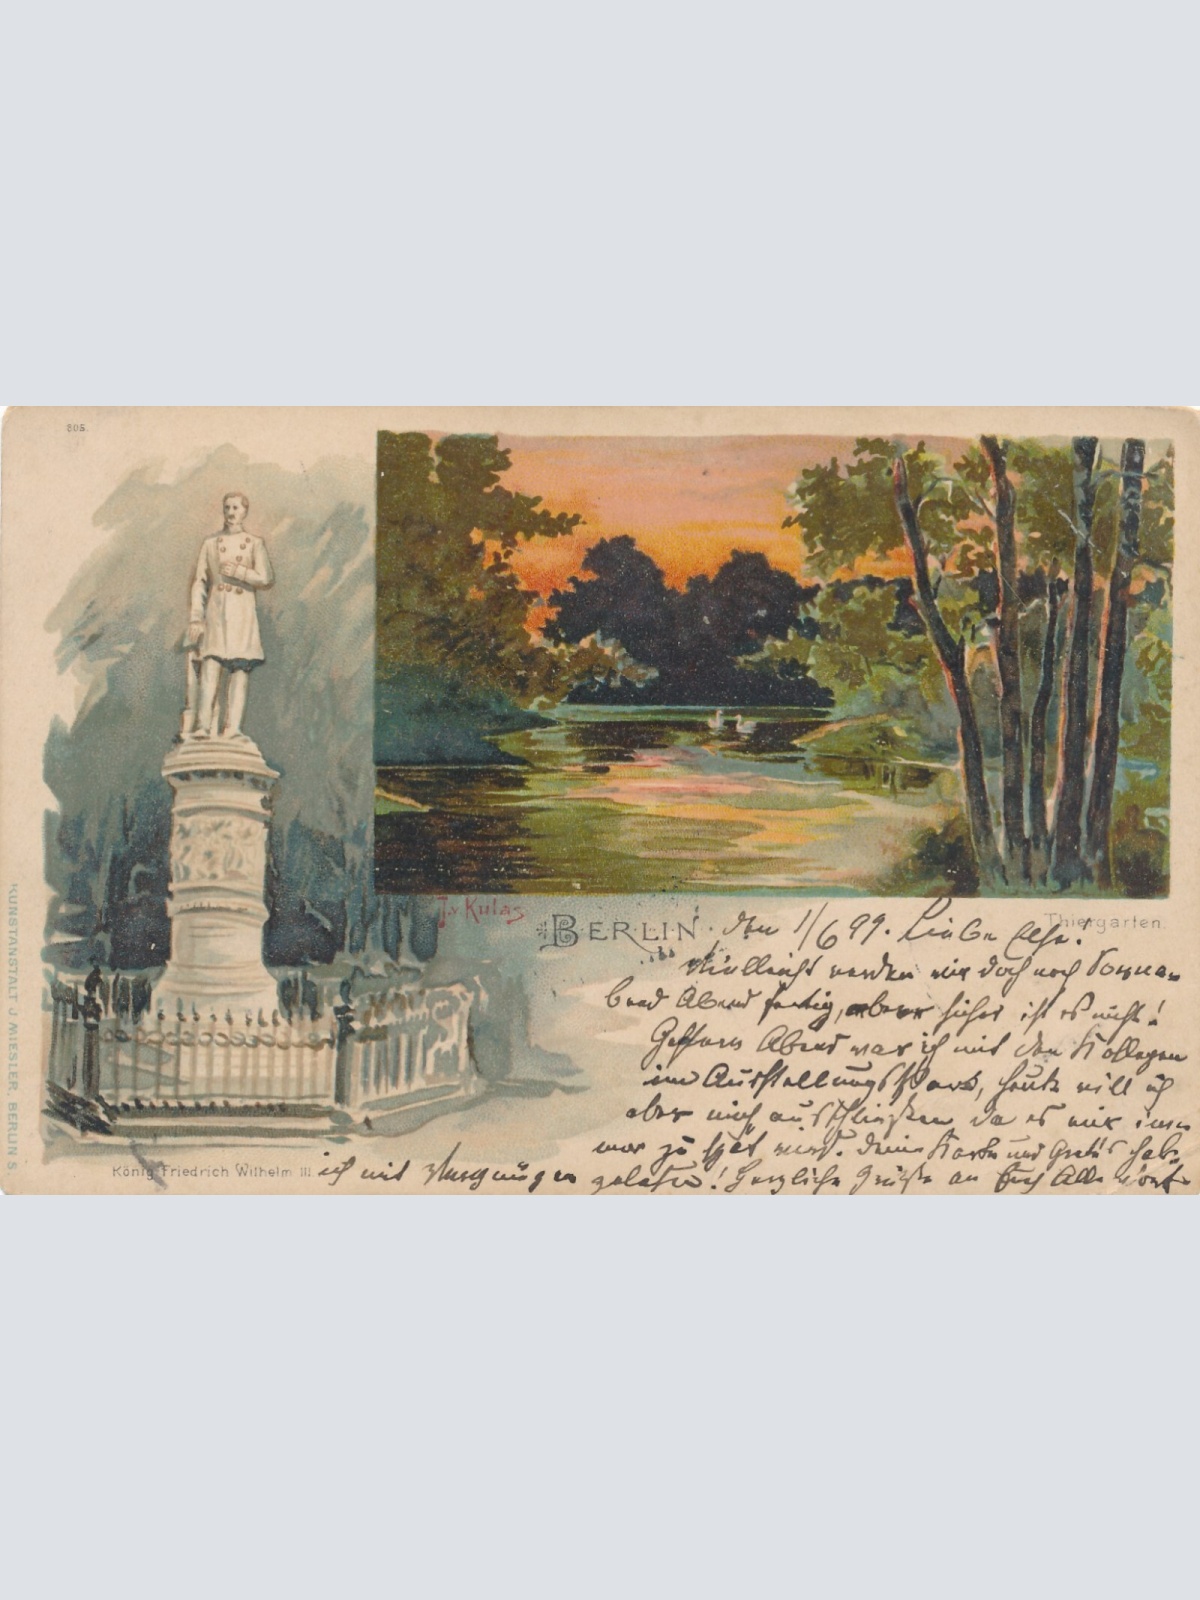 805.
J.v. Kulas
BERLIN. den 1/6 99. Liebe Else!
Thiergarten.
Vielleicht werden wir doch noch Sonna-
bend Abend fertig, aber sicher ist es nicht!
Gestern Abend war ich mit den Kollegen
im Ausstellungspark, heute will ich
aber mich ausschließen da es mir im
mer zu spät wird. Deine Karte und Gretes habe
König Friedrich Wilhelm III ich mit Vergnügen gelesen! Herzliche Grüße an Euch Alle
KUNSTANSTALT J. MIESLER, BERLIN S.